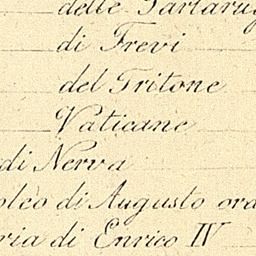 delle Tartarug
di Trevi
del Tritone
Vaticane
di Nerva
oleo di Augusto ora
ria di Enrico IV